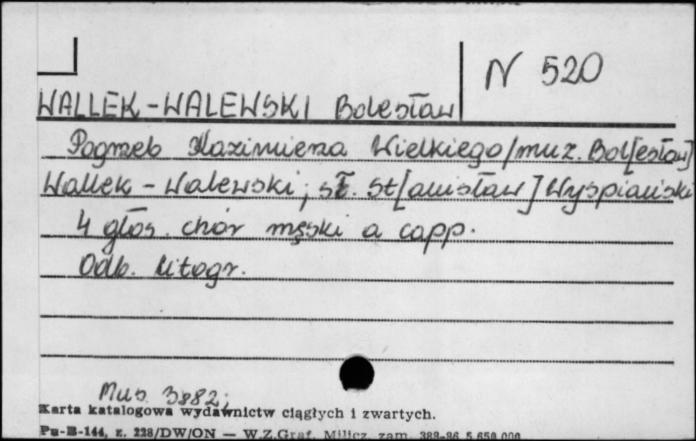 N 520
WALLEK-WALEWSKI Bolesław
Pogrzeb Kazimierza Wielkiego/muz. Bol[esław]
Wallek-Walewski; sł. St[anisław] Wyspiański
4 głos. chór męski a capp.
Odb. litogr.
Mus. 3882;
Karta katalogowa wydawnictw ciągłych i zwartych.
Pu-B-144, z. 228/DW/ON — W.Z.Graf. Milicz, zam. 388-86 5.650.000